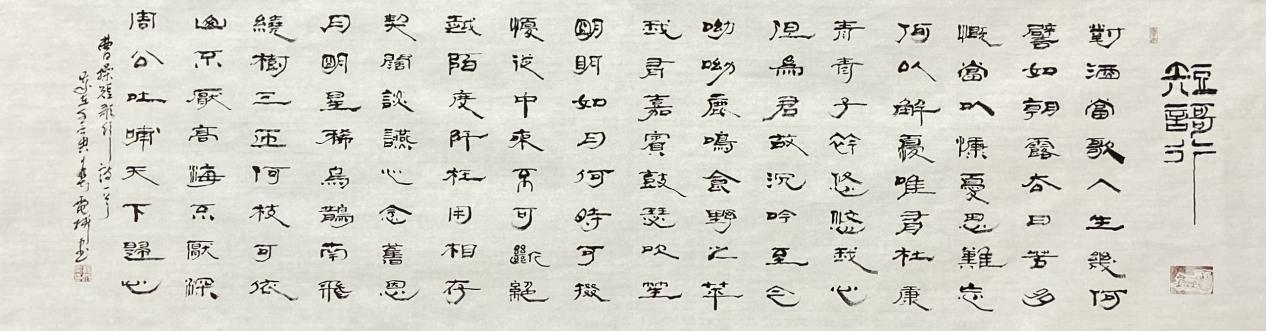 短謌行
對酒當歌人生幾何
譬如朝露去日苦多
慨當以慷憂思難忘
何以解憂唯有杜康
青青子衿悠悠我心
但為君故沉吟至今
呦呦鹿鳴食野之苹
我有嘉賓鼓瑟吹笙
明明如月何時可掇
憂從中來不可斷絕
越陌度阡枉用相存
契闊談讌心念舊恩
月明星稀烏鵲南飛
繞樹三匝何枝可依
山不厭高海不厭深
周公吐哺天下歸心
曹操短歌行詩一首
歲在壬寅